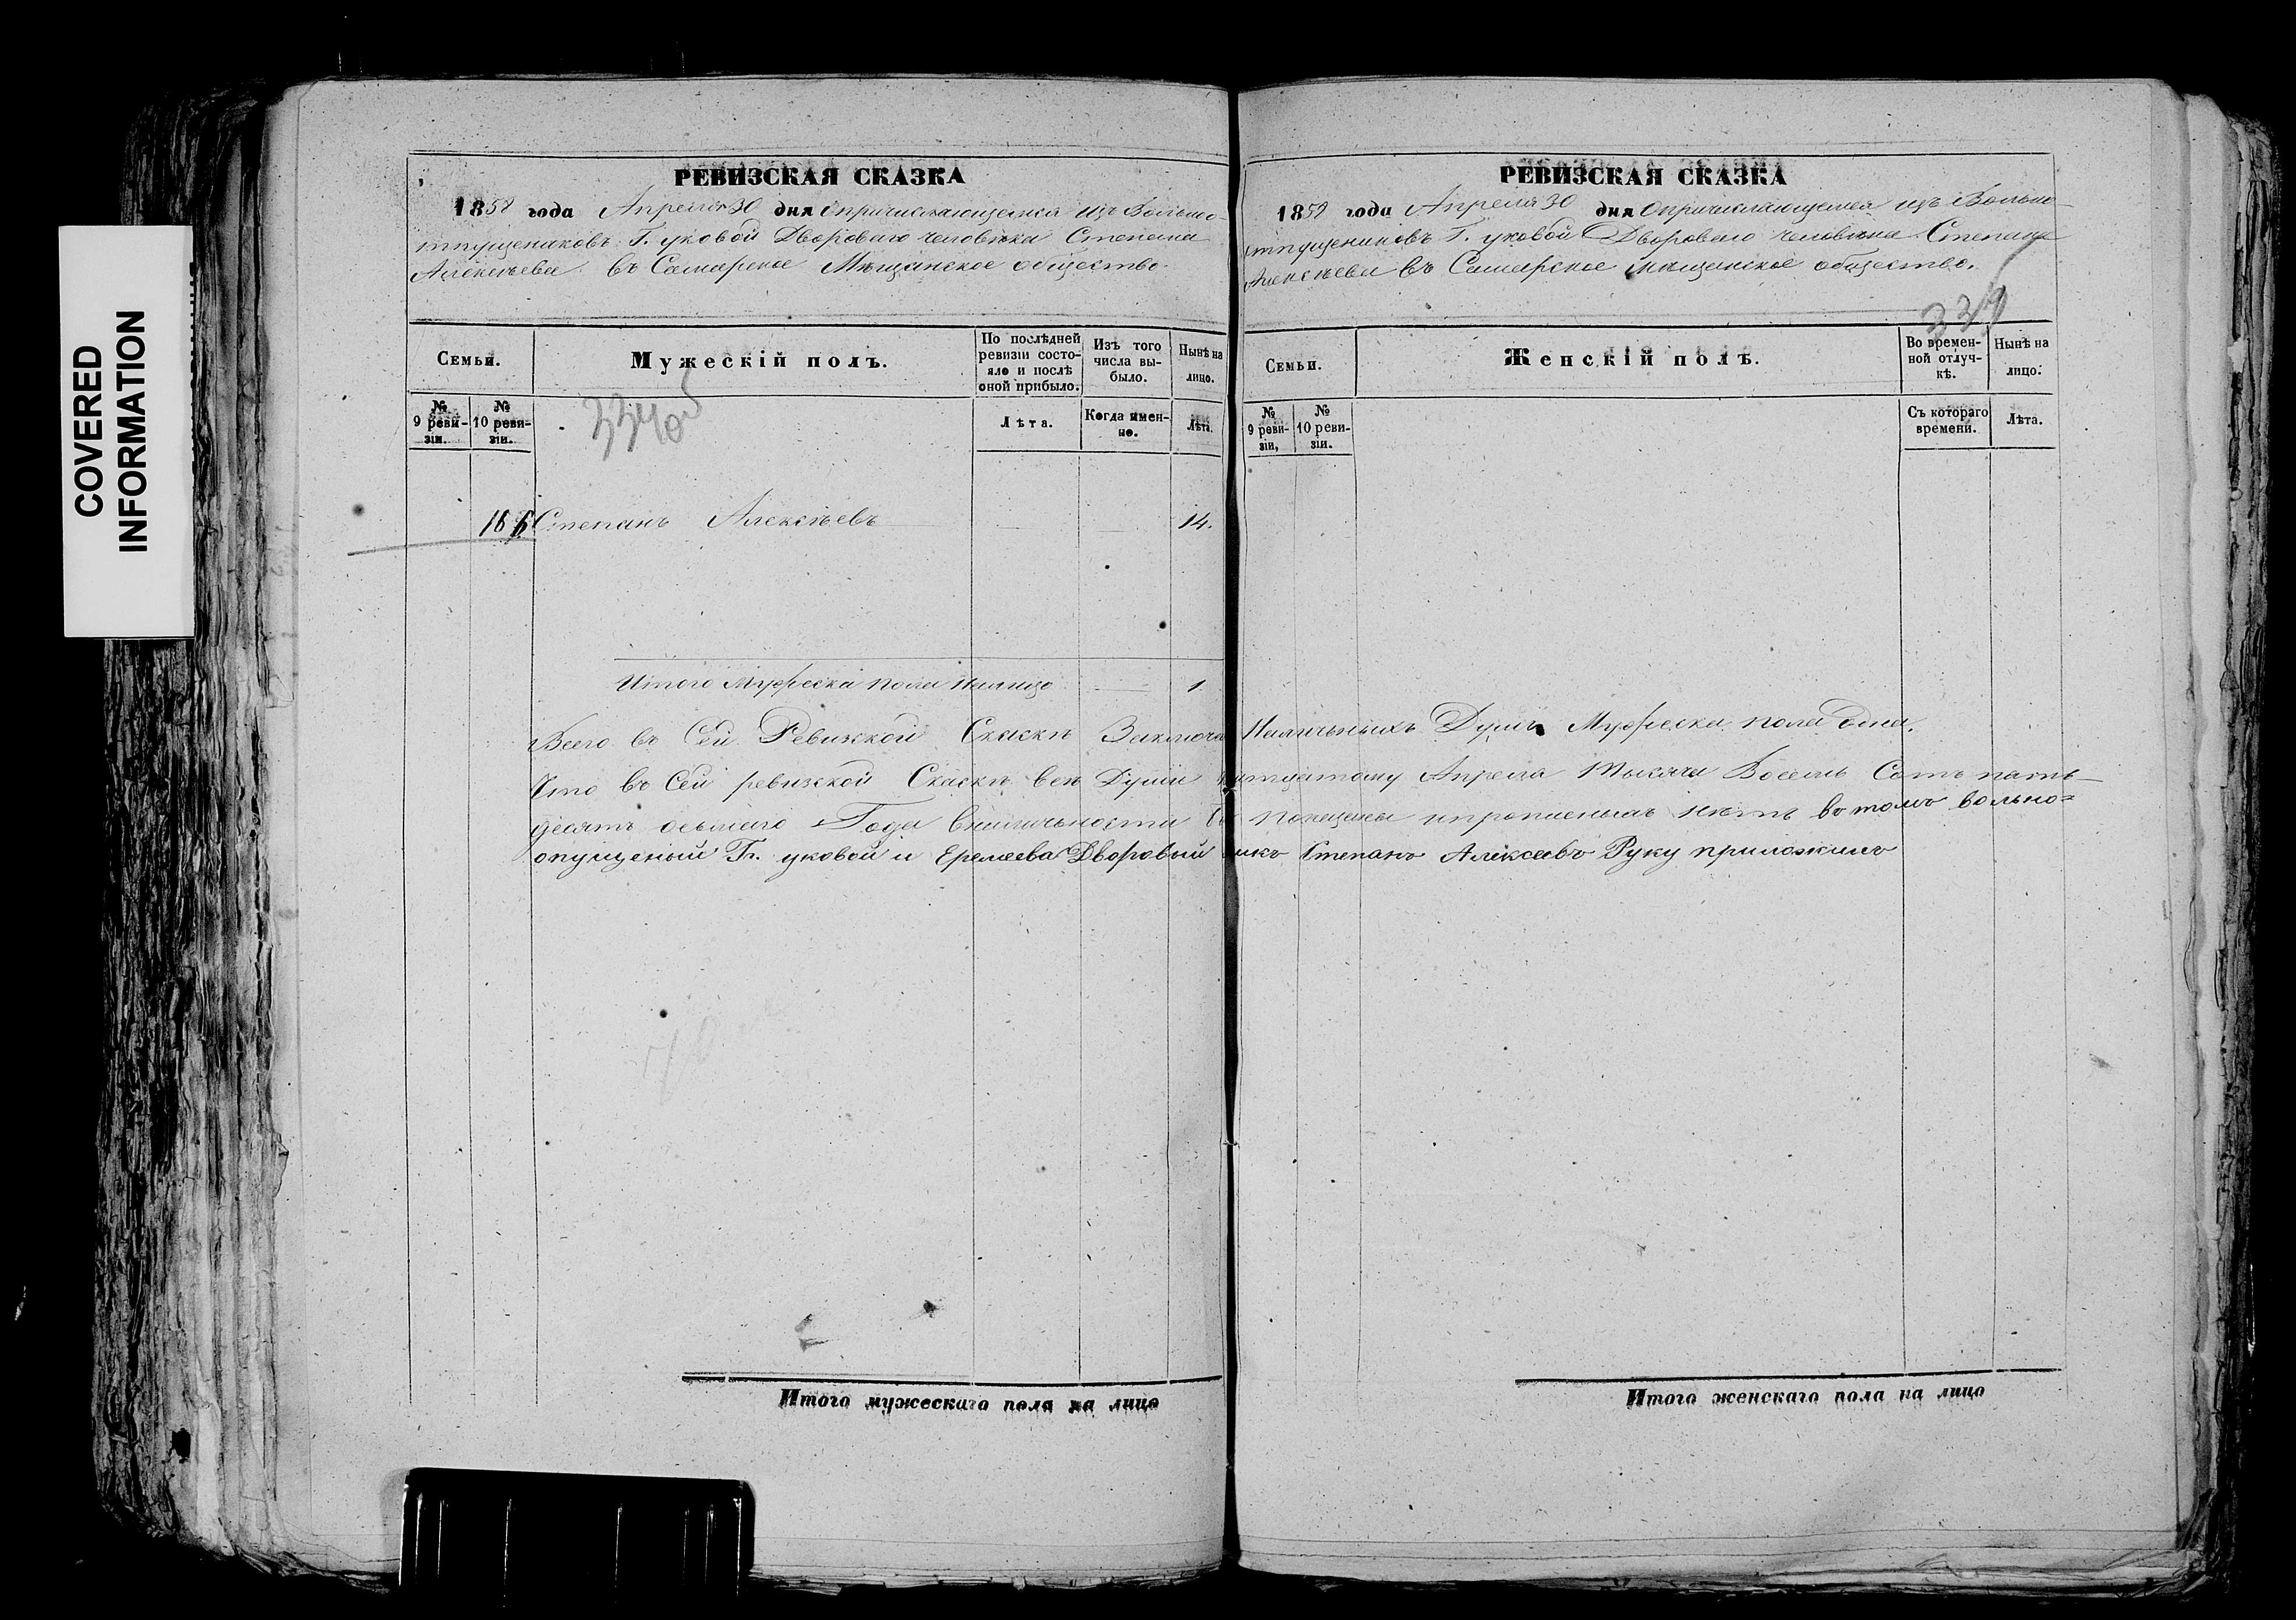 COVERED
INFORMATION
РЕВИЗСКАЯ СКАЗКА
1858 года Апреля 30 дня Опричисляющемся изъ Вольно-
тпущениковъ Г. уковой Двороваго человѣка Степана
Алексѣева въ Самарское Мѣщанское общество.
Семьи.
Мужескій полъ.
По послѣдней ревизіи состояло и послѣ оной прибыло.
Изъ того числа выбыло.
Нынѣ на лицо.
№ 9 ревизіи.
№ 10 ревизіи.
Лѣта.
Когда именно.
Лѣта.
334об
186 Степанъ Алексѣевъ 14.
Итого Мужеска пола налицо 1
РЕВИЗСКАЯ СКАЗКА
1858 года Апреля 30 дня Опричисляющемся изъ Вольно-
тпущениковъ Г. уковой Двороваго человѣка Степана
Алексѣева въ Самарское мѣщанское общество.
Семьи.
Женскій полъ.
Во временной отлучкѣ.
Нынѣ на лицо.
№ 9 ревизіи,
№ 10 ревизіи.
Съ котораго времени.
Лѣта.
Всего въ Сей Ревизской Скаскѣ Заключа Наличьныхъ Душъ Мужеска пола одна.
Что въ Сей ревизской Скаскѣ всѣ Души Апреля Тысяча Восемь Сотъ пять-
десятъ осьмаго Года вналичьности ипрописныхъ нѣтъ втомъ вольно=
опущеный Гп. уковой и Еремеева Дворовый Степанъ Алексеевъ Руку приложилъ
Итого мужескаго пола на лицо
Итого женскаго пола на лицо